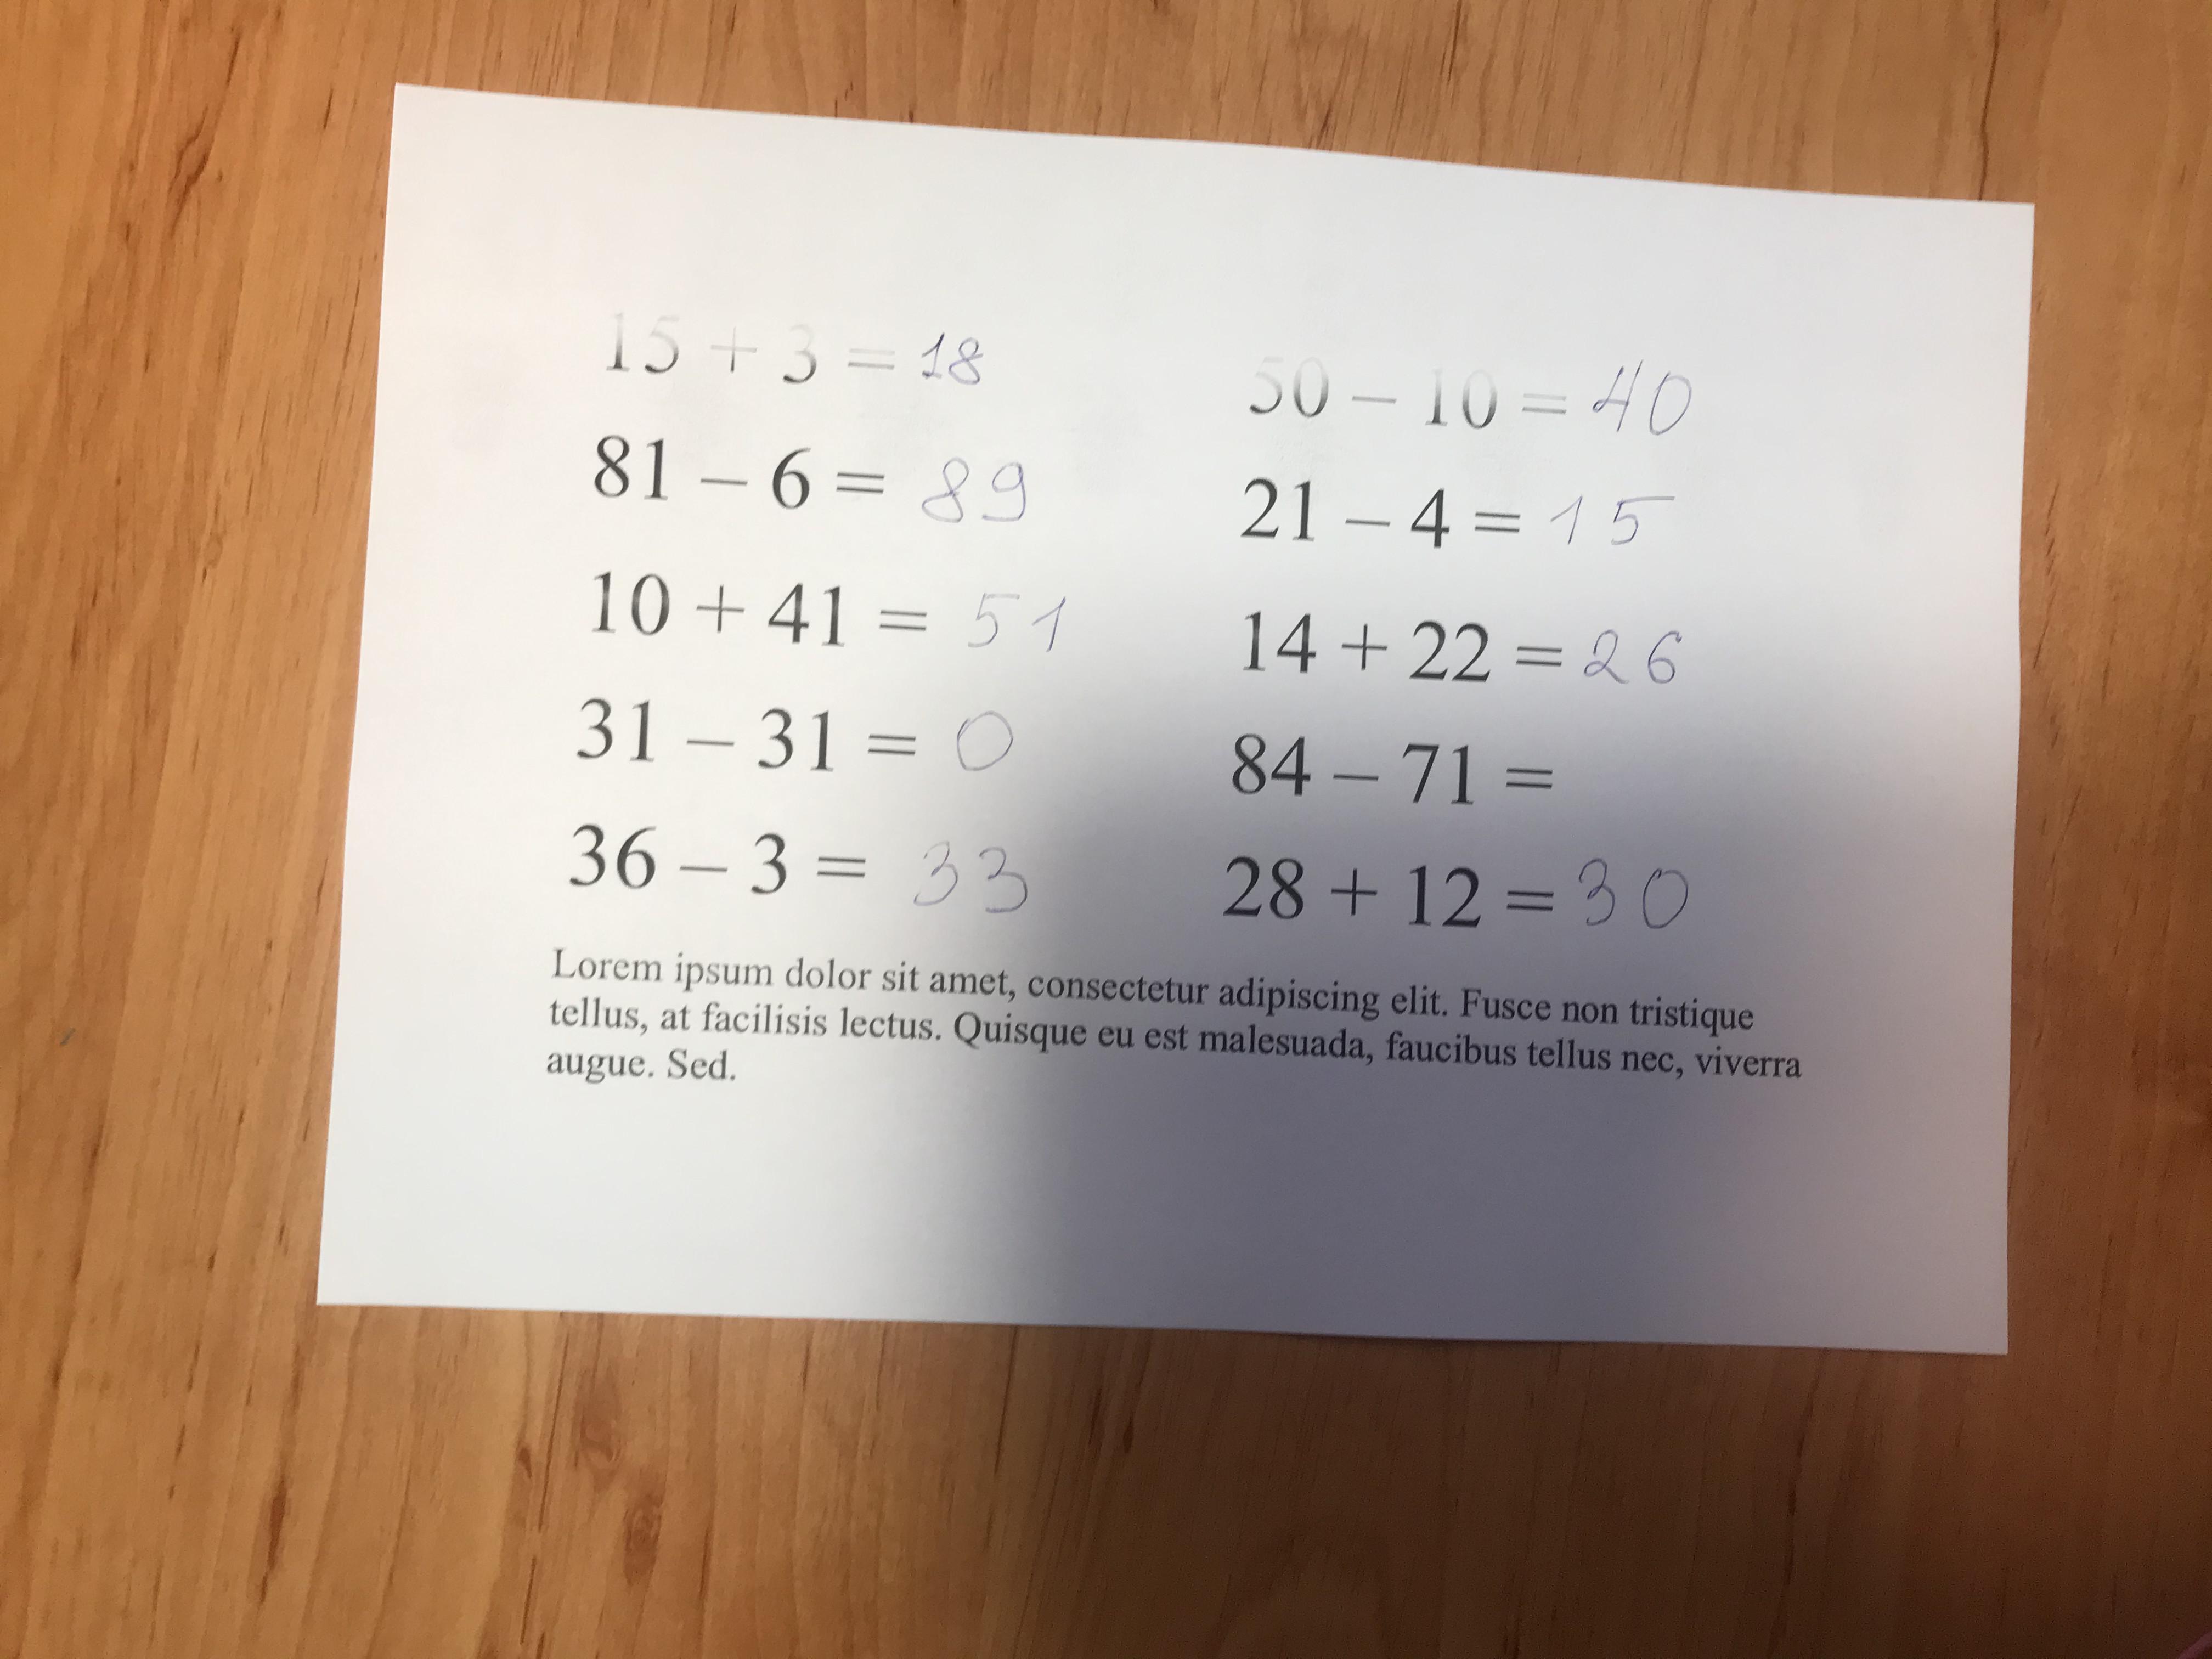 15 + 3 = 18
81 – 6 = 89
10 + 41 = 51
31 – 31 = 0
36 – 3 = 33
50 – 10 = 40
21 – 4 = 15
14 + 22 = 26
84 – 71 =
28 + 12 = 30
Lorem ipsum dolor sit amet, consectetur adipiscing elit. Fusce non tristique
tellus, at facilisis lectus. Quisque eu est malesuada, faucibus tellus nec, viverra
augue. Sed.